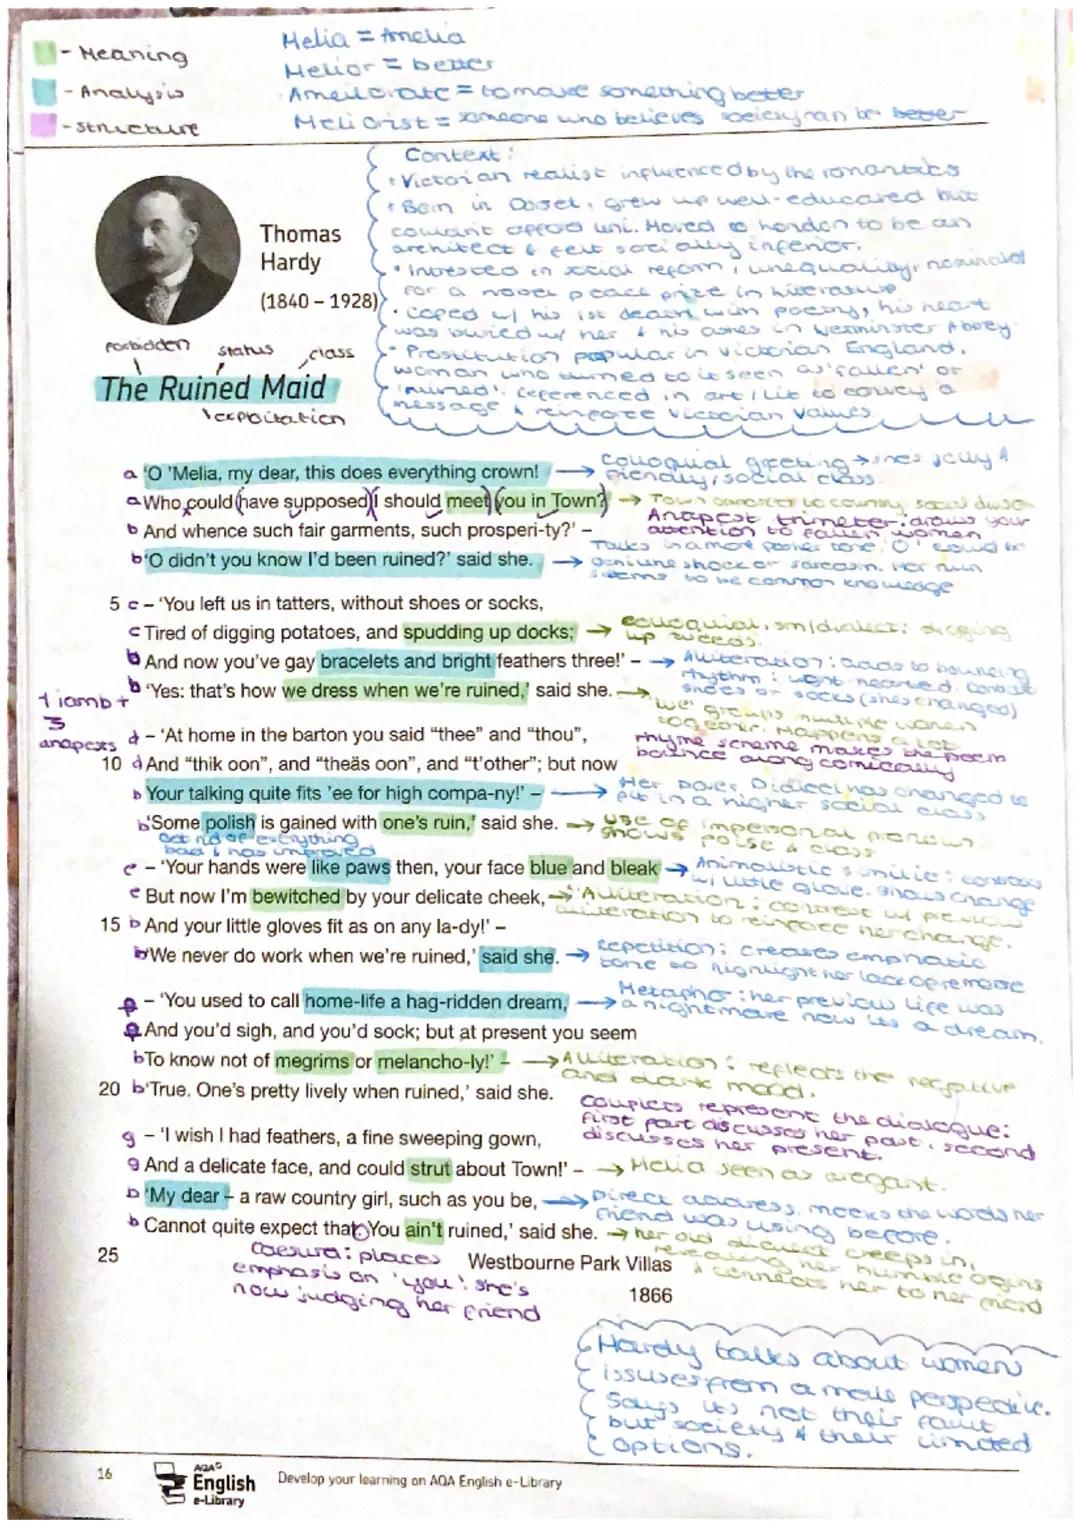 - Meaning
- Analysis
- Structure
Melia = Amelia
Melior = better
Ameilorate = to make something better
Meliorist = someone who believes society can be better
Context:
• Victorian realist influenced by the romantics
• Born in Dorset, grew up well-educated but
couldn't afford uni. Moved to London to be an
architect & felt socially inferior.
• Intrested in social reform, unequality, nominated
for a nobel peace prize in literature
• Coped w/ his 1st death with poetry, his heart
was buried w/ her & his ashes in Westminster Abbey
• Prostitution popular in Victorian England.
woman who turned to it seen as 'fallen' or
'ruined'. referenced in art / lit to convey a
message & reinforce Victorian values
Thomas
Hardy
(1840 – 1928)
forbidden
status
class
The Ruined Maid
exploitation
a 'O 'Melia, my dear, this does everything crown! → Colloquial greeting → she's jelly &
friendly, social class.
a Who could have supposed I should meet you in Town? → Town opposed to country, social
Anapest trimeter: draws your
b And whence such fair garments, such prosperi-ty?' – attention to fallen women
Talks in a more posher tone. 'O' could be
b 'O didn't you know I'd been ruined?' said she. → genuine shock or sarcasm. Her ruin
seems to be common knowledge
5 c – 'You left us in tatters, without shoes or socks,
c Tired of digging potatoes, and spudding up docks; → colloquial, sm/dialect: digging
up weeds.
b And now you've gay bracelets and bright feathers three!' – → Alliteration: adds to bouncing
rhythm: light hearted. Contrast
b 'Yes: that's how we dress when we're ruined,' said she. → shoes or socks (she's changed)
'we' groups multiple women
together. Happens a lot
1 iamb +
3
anapests
d – 'At home in the barton you said "thee" and "thou",
rhyme scheme makes the poem
bounce along comically
10 d And "thik oon", and "theäs oon", and "t'other"; but now
b Your talking quite fits 'ee for high compa-ny!' – → Her Dialect has changed to
fit in a higher social class
b 'Some polish is gained with one's ruin,' said she. → use of impersonal pronoun
shows poise & class
Get rid of everything
bad & has improved
e – 'Your hands were like paws then, your face blue and bleak → Animalistic simile: contrasts
w/ little glove. shows change
e But now I'm bewitched by your delicate cheek, → Alliteration: contrast w/ previous
alliteration to reinforce her change.
15 b And your little gloves fit as on any la-dy!' –
b 'We never do work when we're ruined,' said she. → Repetition: creates emphatic
tone to highlight her lack of remorse
– 'You used to call home-life a hag-ridden dream, → Metaphor: her previous life was
a nightmare now its a dream.
And you'd sigh, and you'd sock; but at present you seem
b To know not of megrims or melancho-ly!' – → Alliteration: reflects the negative
and dark mood.
20 b 'True. One's pretty lively when ruined,' said she.
Couplets represent the dialogue:
first part discusses her past, second
discusses her present.
g – 'I wish I had feathers, a fine sweeping gown,
g And a delicate face, and could strut about Town!' – → Melia seen as arrogant.
b 'My dear – a raw country girl, such as you be, → Direct address, mocks the words her
friend was using before.
b Cannot quite expect that. You ain't ruined,' said she. → her old dialect creeps in,
revealing her humble origins
& connects her to her friend
25
Caesura: places
emphasis on 'you'. she's
now judging her friend
Westbourne Park Villas
1866
Hardy talks about women
issues from a male perspective.
Says its not their fault
but society & their limited
options.
16
AQA
English
e-Library
Develop your learning on AQA English e-Library